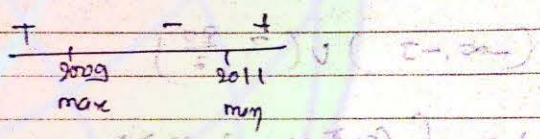 + - +
2009 2011
max min